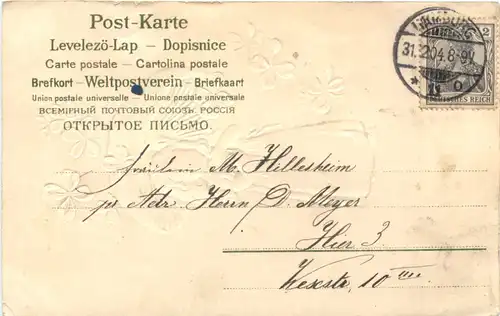 Post-Karte
Levelező-Lap — Dopisnice
Carte postale — Cartolina postale
Brefkort — Weltpostverein — Briefkaart
Union postale universelle — Unione postale universale
ВСЕМІРНЫЙ ПОЧТОВЫЙ СОЮЗЪ. РОССІЯ
ОТКРЫТОЕ ПИСЬМО.
31.12.04.8-9V.
2
DEUTSCHES REICH
Fräulein M. Hillesheim
pr Adr Herrn D. Meyer
Hier 3.
10